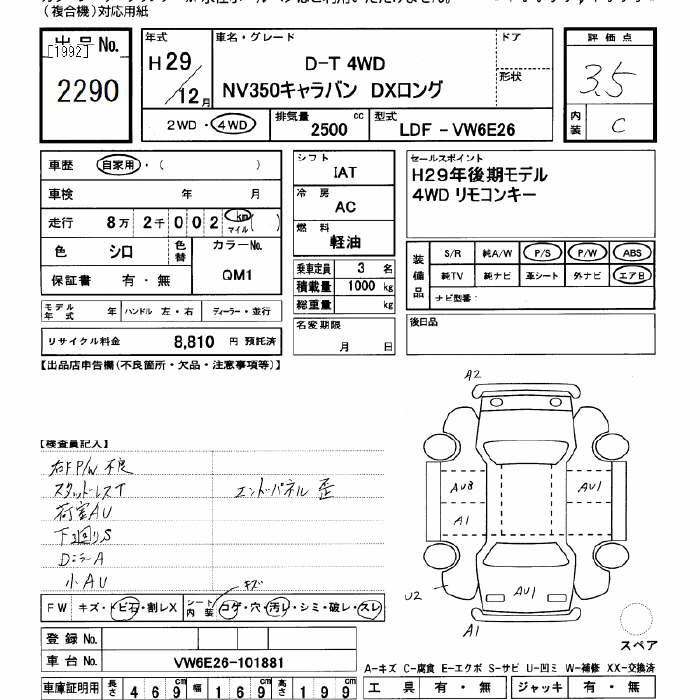 (複合機)対応用紙
出品No.
[1992]
2290
年式
H29
12月
車名・グレード
D-T 4WD
NV350キャラバン DXロング
ドア
形状
2WD・4WD
排気量
2500 cc
型式
LDF - VW6E26
評価点
3.5
内装
C
車歴 自家用・( )
車検 年 月
走行 8万 2千 0 0 2 km マイル( )
色 シロ 色替
カラーNo.
QM1
保証書 有・無
モデル年式 年 ハンドル 左・右 ディーラー・並行
リサイクル料金 8,810 円 預託済
シフト
IAT
冷房
AC
燃料
軽油
乗車定員 3 名
積載量 1000 kg
総重量 kg
名変期限
月 日
セールスポイント
H29年後期モデル
4WD リモコンキー
装備品
S/R 純A/W P/S P/W ABS
純TV 純ナビ 革シート 外ナビ エアB
ナビ型番:
後日品
【出品店申告欄(不良箇所・欠品・注意事項等)】
【検査員記入】
右F P/W 不良
スタットレスT
荷室AU
下廻りS
DミラーA
小AU
エンドパネル 歪
キズ
FW キズ・トビ石・割レX
シート内装 コゲ・穴・汚レ・シミ・破レ・スレ
A2
AUB
A1
AU1
U2
AU1
A1
スペア
登録No.
車台No. VW6E26-101881
A-キズ C-腐食 E-エクボ S-サビ U-凹ミ W-補修 XX-交換済
車庫証明用 長さ 4 6 9 cm 幅 1 6 9 cm 高さ 1 9 9 cm
工具 有・無 ジャッキ 有・無